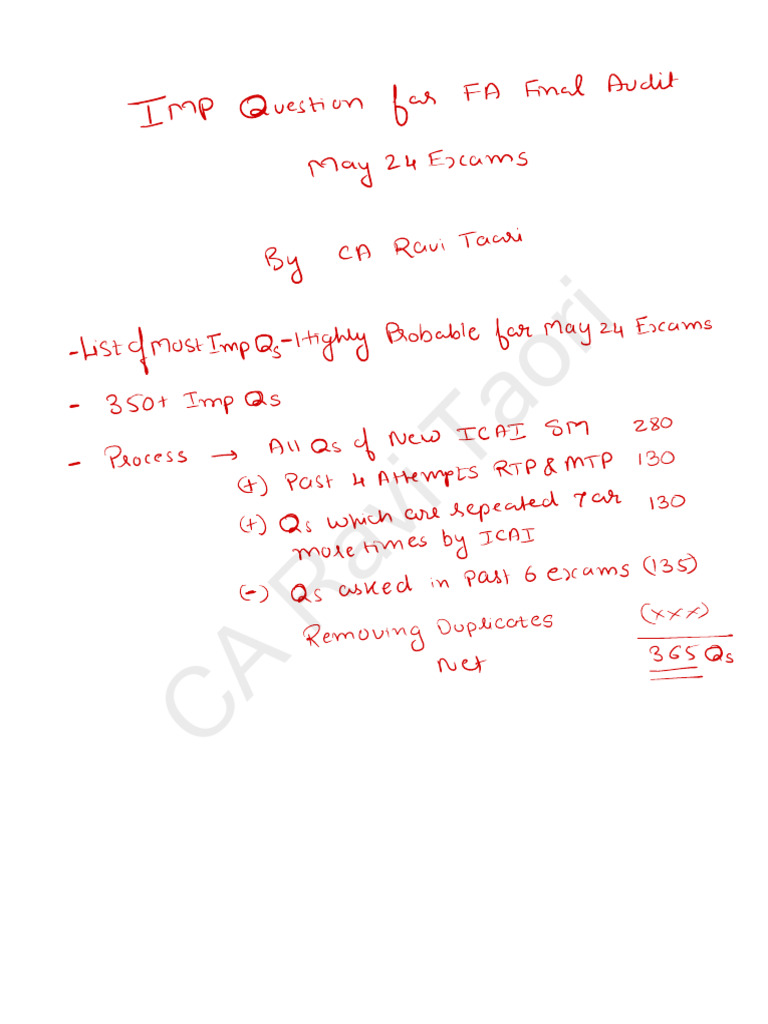 Imp Question for FA Final Audit
May 24 Exams
By CA Ravi Taori
- List of Most Imp Qs - Highly Probable for May 24 Exams
- 350+ Imp Qs
- Process → All Qs of New ICAI SM 280
(+) Past 4 Attempts RTP & MTP 130
(+) Qs which are repeated 7 or 130
more times by ICAI
(-) Qs asked in Past 6 exams (135)
Removing Duplicates (xxx)
Net 365 Qs
CA Ravi Taori